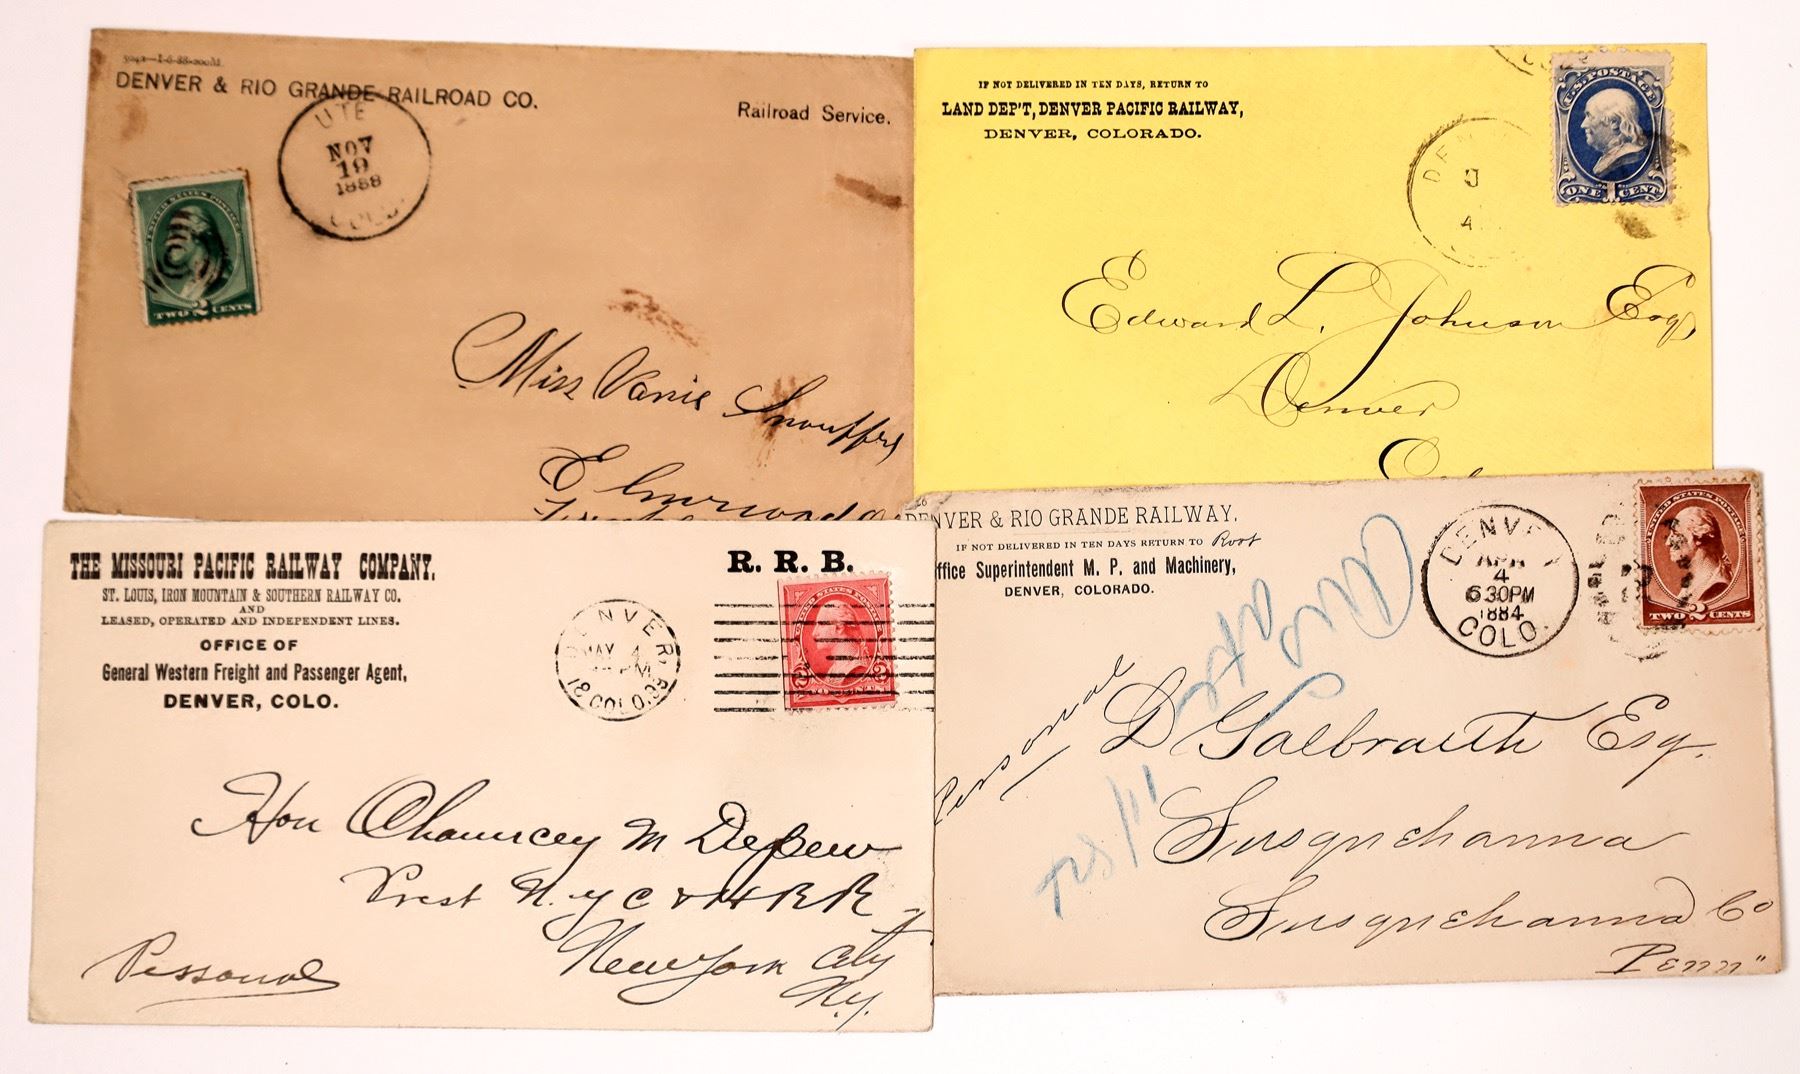 DENVER & RIO GRANDE RAILROAD CO.
Railroad Service.
UTE
NOV
19
1888
COLO.
UNITED STATES POSTAGE
TWO 2 CENTS
Miss Vanie Snouffer
Elmwood
IF NOT DELIVERED IN TEN DAYS, RETURN TO
LAND DEP'T, DENVER PACIFIC RAILWAY,
DENVER, COLORADO.
U.S. POSTAGE
ONE 1 CENT
DEN
J
4
Edward L. Johnson Esq,
Denver
THE MISSOURI PACIFIC RAILWAY COMPANY,
ST. LOUIS, IRON MOUNTAIN & SOUTHERN RAILWAY CO.
AND
LEASED, OPERATED AND INDEPENDENT LINES.
OFFICE OF
General Western Freight and Passenger Agent,
DENVER, COLO.
R. R. B.
DENVER
MAY 4
PM
COLO.
TWO CENTS
Hon Chauncey M Depew
Prest N.Y C & H R R R
New York City
N.Y.
Personal
DENVER & RIO GRANDE RAILWAY.
IF NOT DELIVERED IN TEN DAYS RETURN TO Root
ffice Superintendent M. P. and Machinery,
DENVER, COLORADO.
DENVER
APR
4
6 30PM
1884
COLO.
UNITED STATES POSTAGE
TWO 2 CENTS
Personal
D Galbraith Esq.
Susquehanna
Susquehanna Co
Penn"